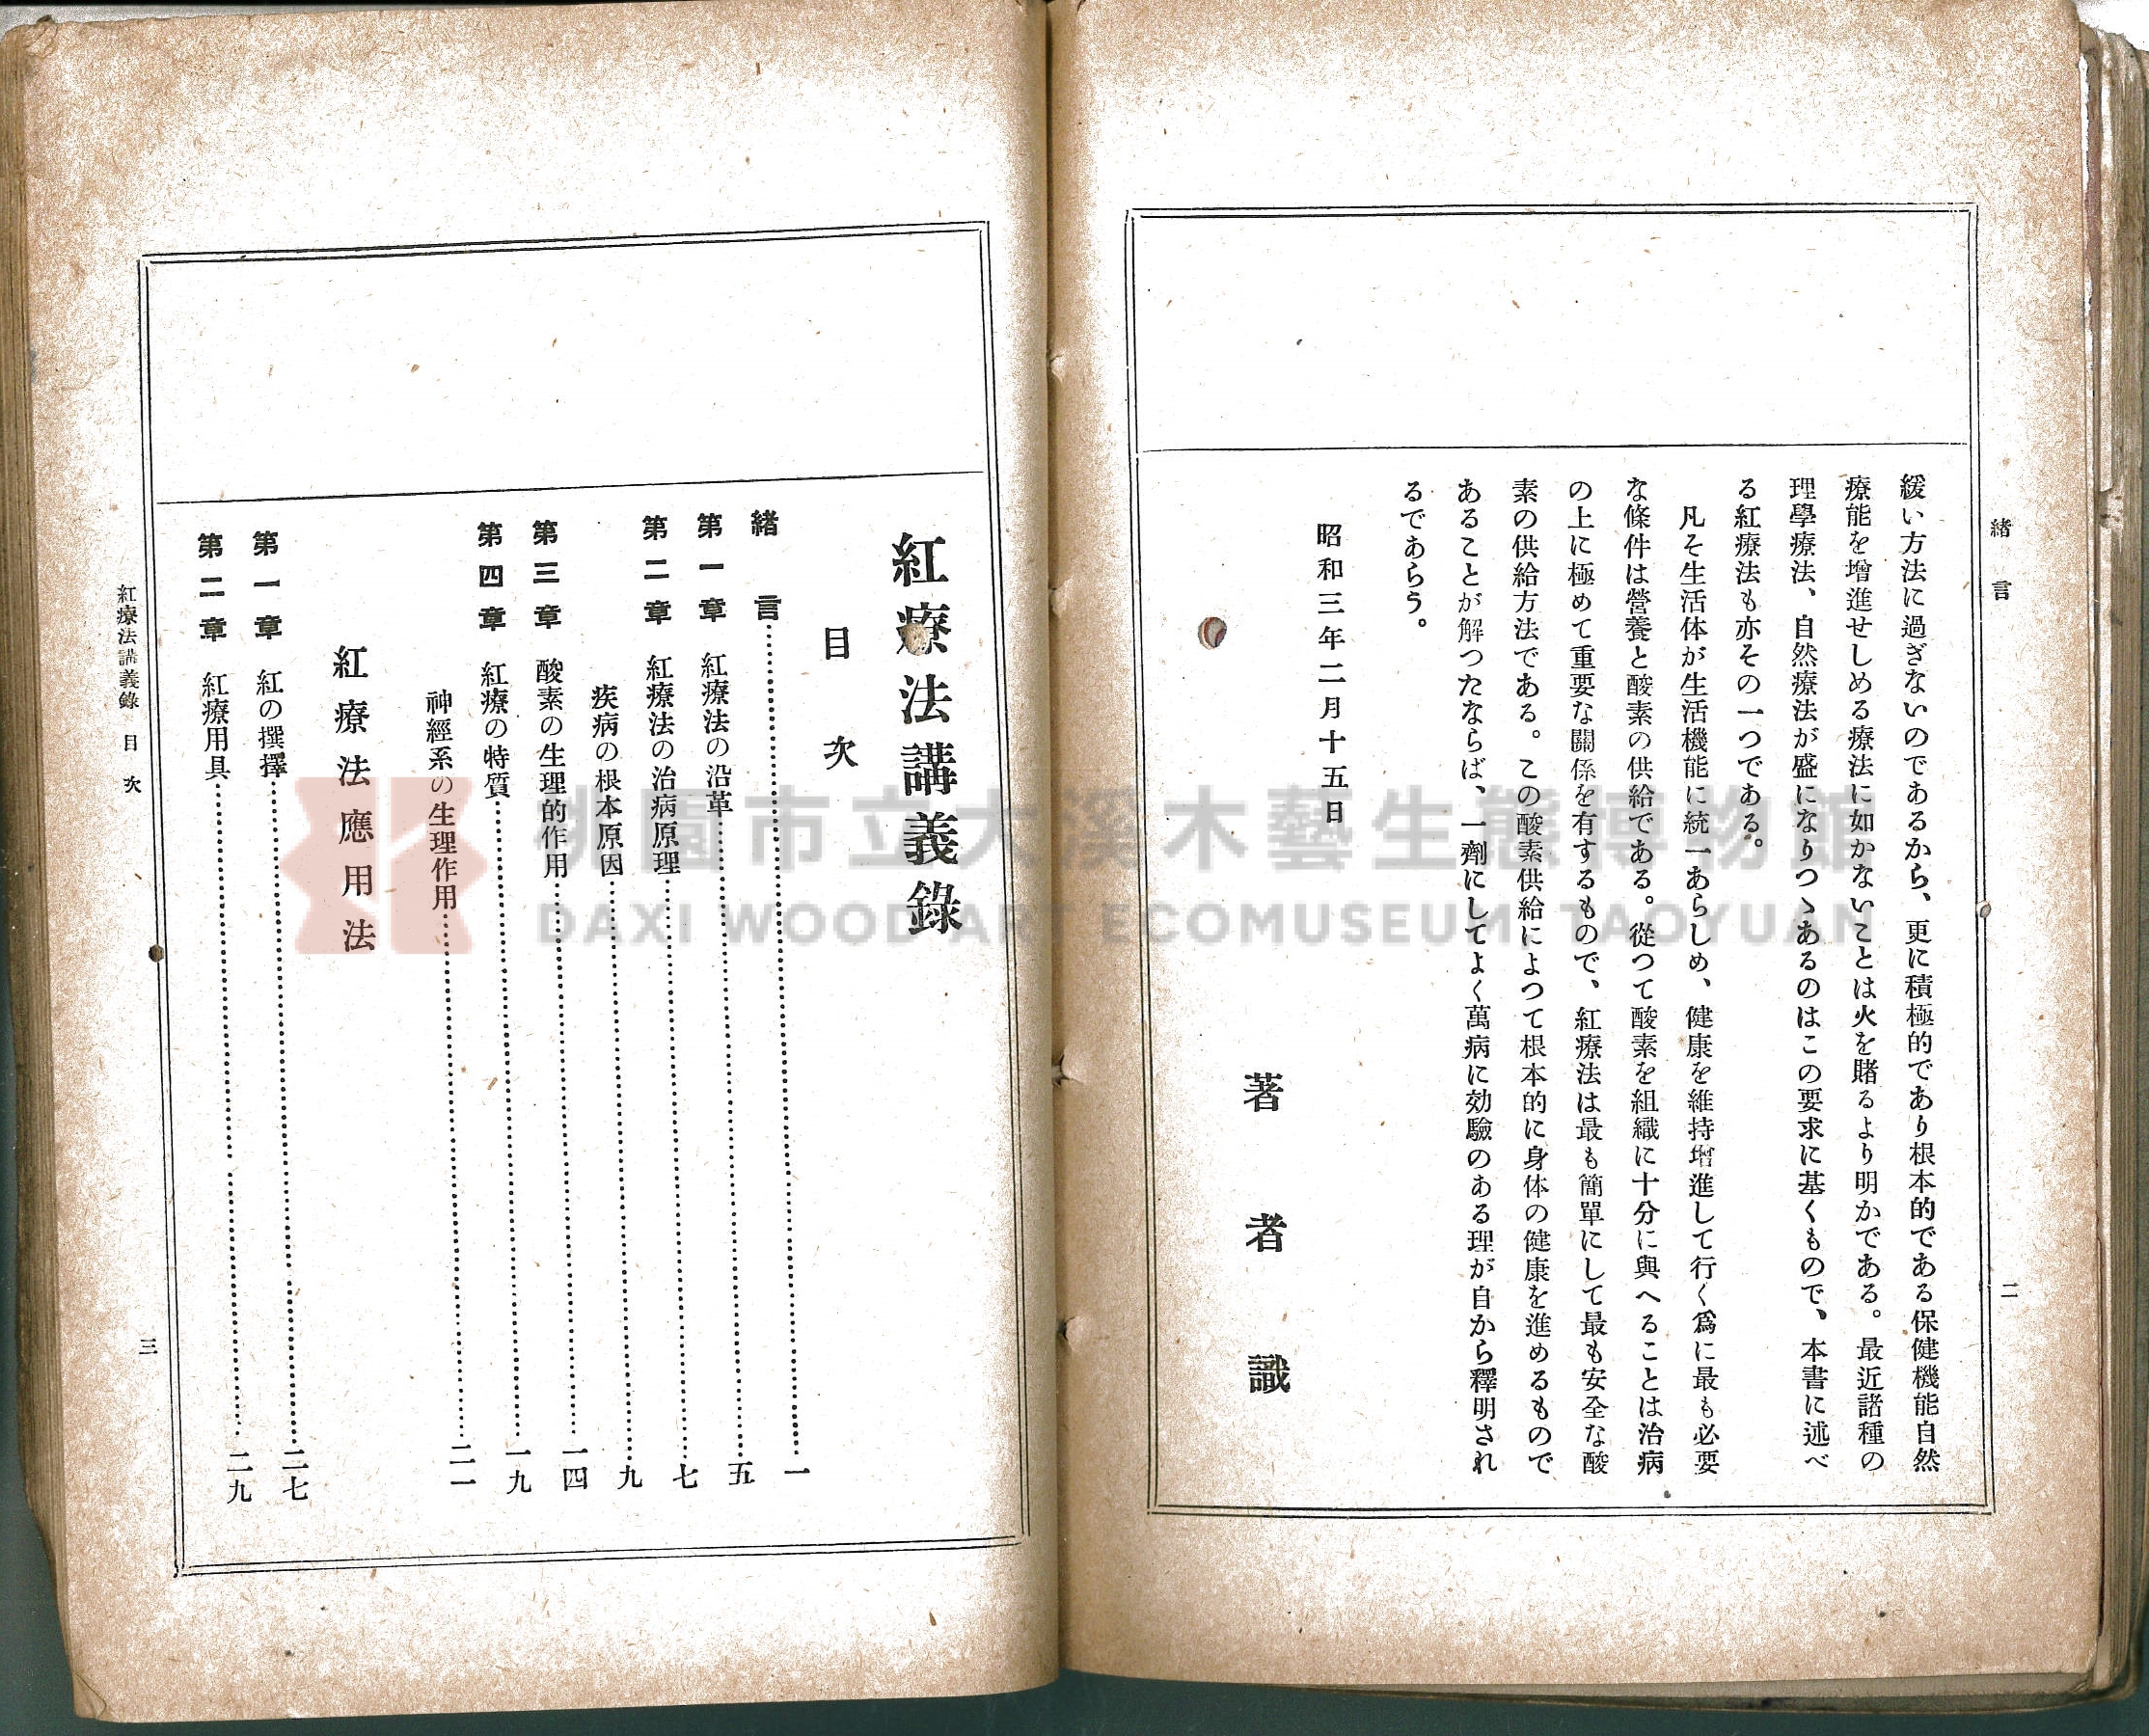 緒言
二
緩い方法に過ぎないのであるから、更に積極的であり根本的である保健機能自然
療能を增進せしめる療法に如かないことは火を賭るより明かである。最近諸種の
理學療法、自然療法が盛になりつゝあるのはこの要求に基くもので、本書に述べ
る紅療法も亦その一つである。
凡そ生活体が生活機能に統一あらしめ、健康を維持增進して行く爲に最も必要
な條件は營養と酸素の供給である。從つて酸素を組織に十分に與へることは治病
の上に極めて重要な關係を有するもので、紅療法は最も簡單にして最も安全な酸
素の供給方法である。この酸素供給によつて根本的に身体の健康を進めるもので
あることが解つたならば、一劑にしてよく萬病に効驗のある理が自から釋明され
るであらう。
昭和三年二月十五日
著者識
紅療法講義錄
目次
緒言……一
第一章 紅療法の沿革……五
第二章 紅療法の治病原理……七
疾病の根本原因……九
第三章 酸素の生理的作用……一四
第四章 紅療の特質……一九
神經系の生理作用……二一
紅療法應用法
第一章 紅の撰擇……二七
第二章 紅療用具……二九
紅療法講義錄 目次
三
桃園市立大溪木藝生態博物館
DAXI WOOD ART ECOMUSEUM, TAOYUAN